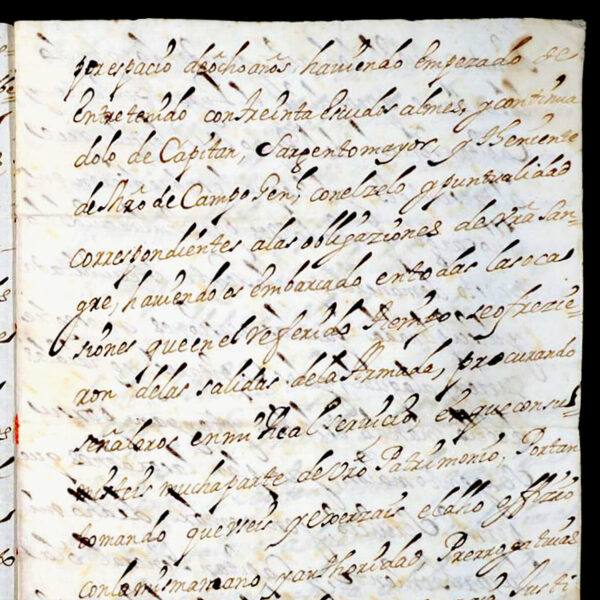 por espacio de ocho años, haviendo empezado de
Entretenido con treinta Escudos al mes, y continua
dolo de Capitan, Sargento mayor, y Theniente
de Mro de Campo Gen.l con el zelo y puntualidad
correspondientes a las obligaziones de Vra San=
gre, haviendoos embarcado en todas las oca
siones que en el referido tiempo se ofrezie=
ron de las salidas de la Armada, procurando
señalaros en mi Real servicio, en que consu=
misteis mucha parte de Vro Patrimonio. Portan
tomando que useis y exerzais el dho offizio
con la misma mano, y authoridad, Prerrogatiuas
Justi